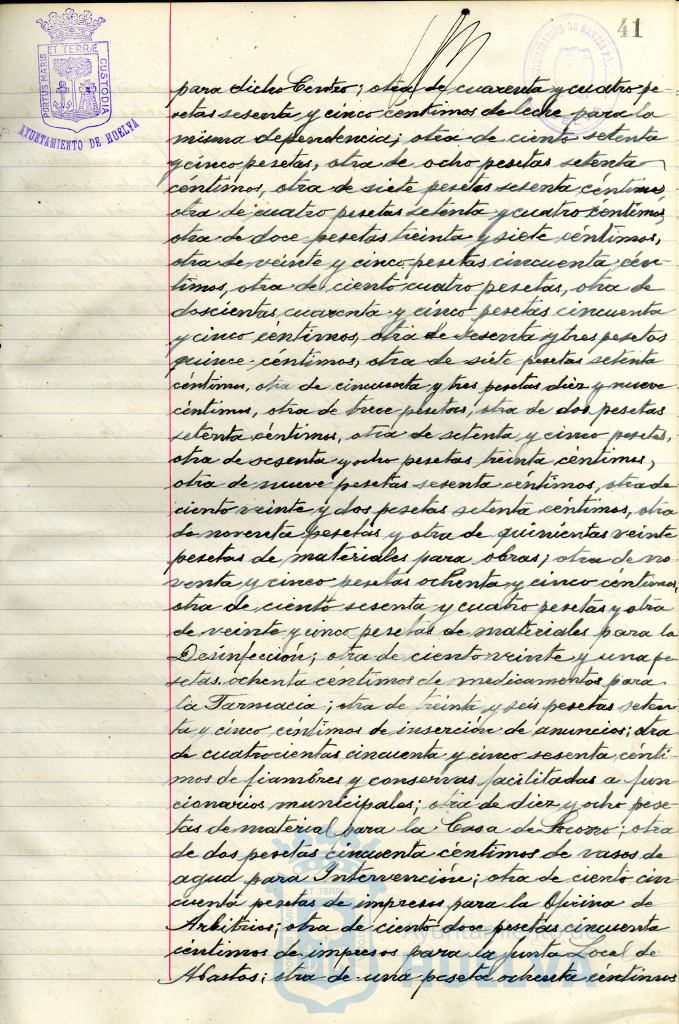 41
PORTUS MARIS ET TERRÆ CUSTODIA
AYUNTAMIENTO DE HUELVA
para dicho Centro; otra de cuarenta y cuatro pe-
setas sesenta y cinco céntimos de leche para la
misma dependencia; otra de ciento setenta
y cinco pesetas, otra de ocho pesetas setenta
céntimos, otra de siete pesetas sesenta céntimos
otra de cuatro pesetas setenta y cuatro céntimos,
otra de doce pesetas treinta y siete céntimos,
otra de veinte y cinco pesetas cincuenta cén-
timos, otra de ciento cuatro pesetas, otra de
doscientas cuarenta y cinco pesetas cincuenta
y cinco céntimos, otra de sesenta y tres pesetas
quince céntimos, otra de siete pesetas setenta
céntimos, otra de cincuenta y tres pesetas diez y nueve
céntimos, otra de trece pesetas, otra de dos pesetas
setenta céntimos, otra de setenta y cinco pesetas,
otra de sesenta y ocho pesetas treinta céntimos,
otra de nueve pesetas sesenta céntimos, otra de
ciento veinte y dos pesetas setenta céntimos, otra
de noventa pesetas y otra de quinientas veinte
pesetas de materiales para obras; otra de no
venta y cinco pesetas ochenta y cinco céntimos,
otra de ciento sesenta y cuatro pesetas y otra
de veinte y cinco pesetas de materiales para la
Desinfección; otra de ciento veinte y una pe-
setas ochenta céntimos de medicamentos para
la Farmacia; otra de treinta y seis pesetas seten-
ta y cinco céntimos de inserción de anuncios; otra
de cuatrocientas cincuenta y cinco sesenta cénti-
mos de fiambres y conservas facilitadas a fun-
cionarios municipales; otra de diez y ocho pese-
tas de material para la Casa de Socorro; otra
de dos pesetas cincuenta céntimos de vasos de
agua para Intervención; otra de ciento cin
cuenta pesetas de impresos para la Oficina de
Arbitrios; otra de ciento doce pesetas cincuenta
céntimos de impresos para la Junta Local de
Abastos; otra de una peseta ochenta céntimos